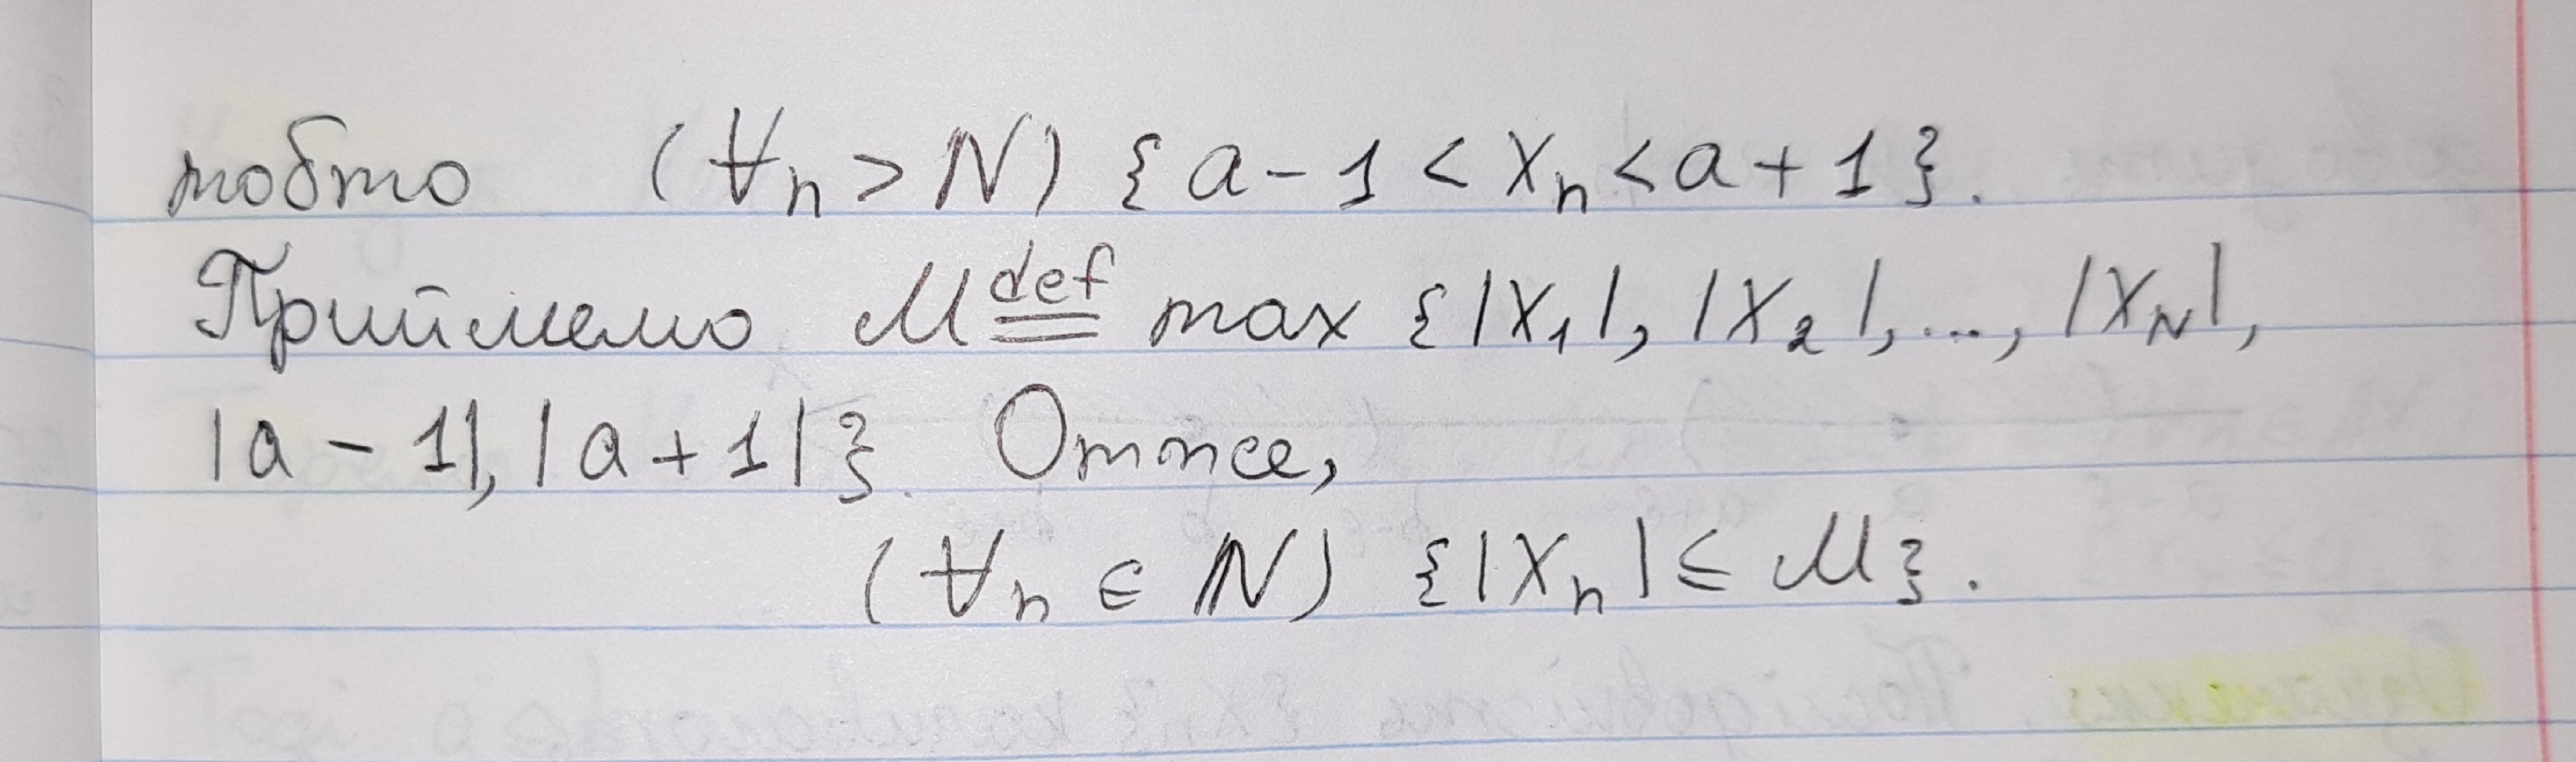 тобто (∀n > N) {a - 1 < xₙ < a + 1}.
Приймемо M ≝ max {|x₁|, |x₂|, ..., |x_N|,
|a - 1|, |a + 1|}. Отже,
(∀n ∈ ℕ) {|xₙ| ≤ M}.